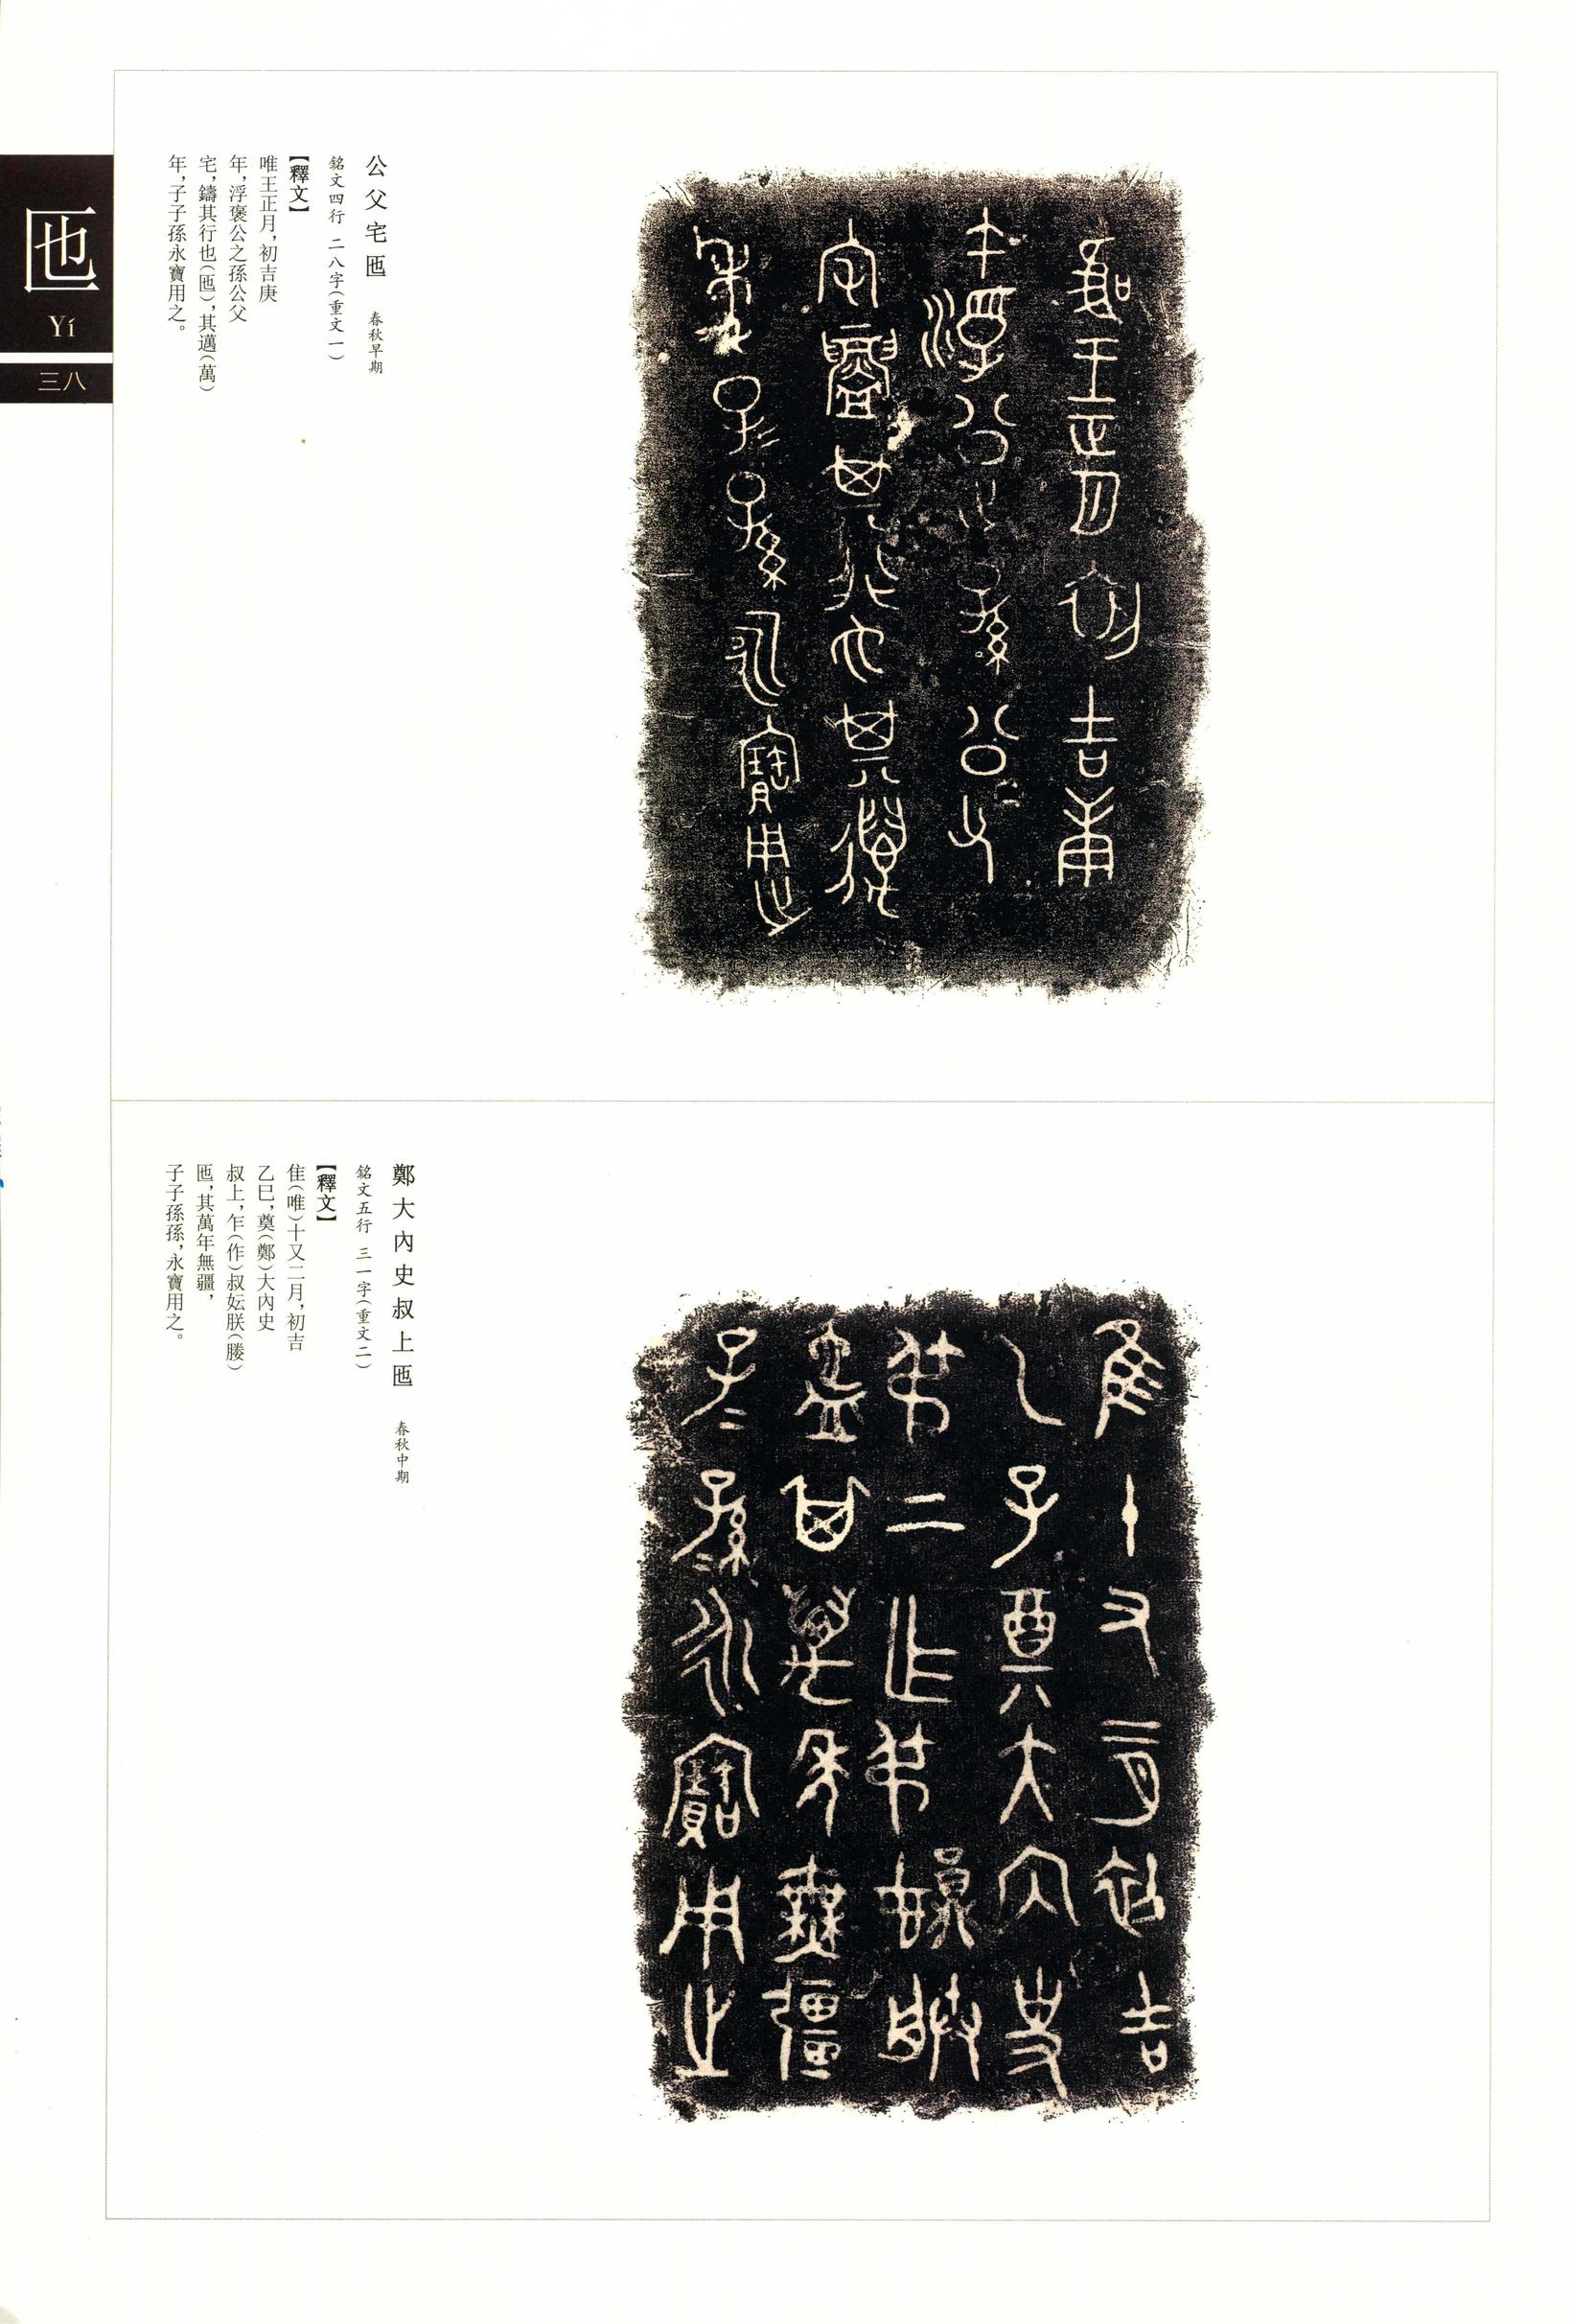 匜
Yí
三八
公父宅匜 春秋早期
銘文四行 二八字(重文一)
【釋文】
唯王正月,初吉庚
年,浮褒公之孫公父
宅,鑄其行也(匜),其邁(萬)
年,子子孫永寶用之。
鄭大內史叔上匜 春秋中期
銘文五行 三一字(重文二)
【釋文】
隹(唯)十又二月,初吉
乙巳,奠(鄭)大內史
叔上,乍(作)叔妘朕(媵)
匜,其萬年無疆,
子子孫孫,永寶用之。